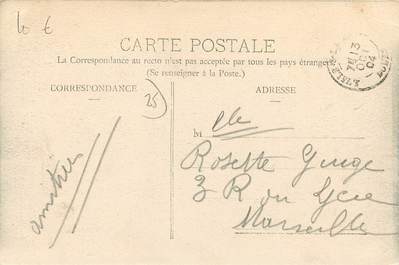 10 €
CARTE POSTALE
La Correspondance au recto n'est pas acceptée par tous les pays étrangers
(Se renseigner à la Poste.)
CORRESPONDANCE
ADRESSE
25
amitiés
M lle
Rosette
3 R du Lycée
Marseille